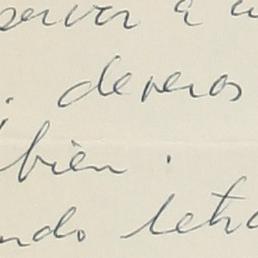 servar a u
. deveras
bien.
ndo letra